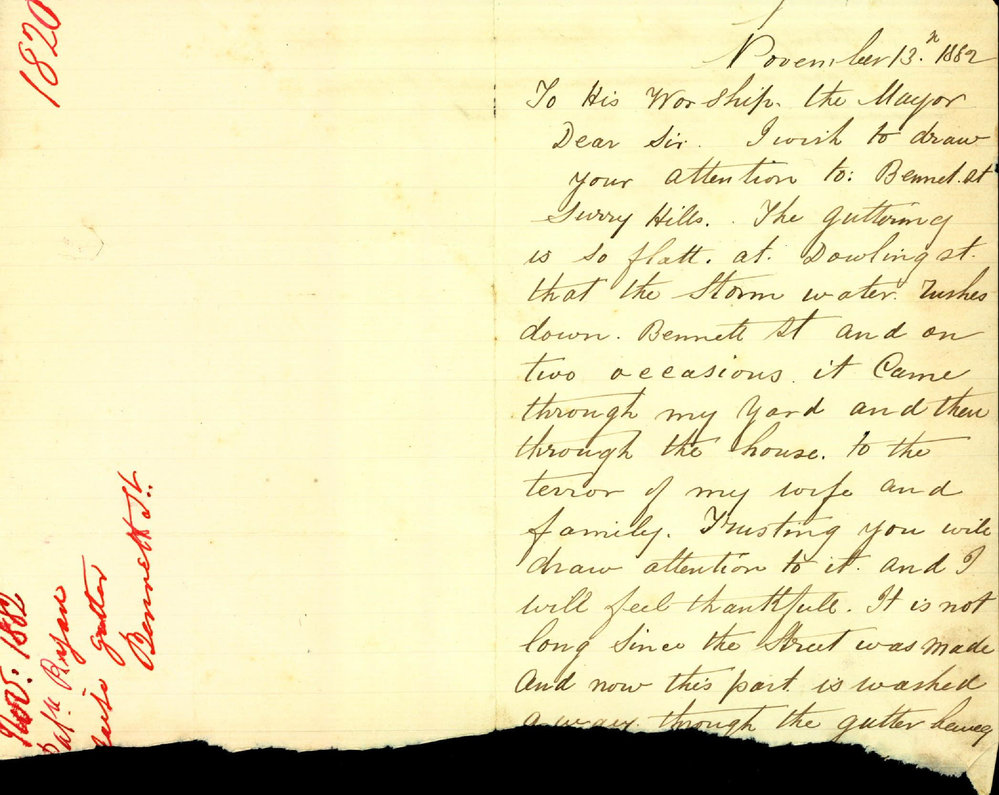 November 13.n 1882
To His Worship. the Mayor
Dear Sir. I wish to draw
your attention to: Bennet. st
Surry Hills. . The guttering
is so flatt. at. Dowling st.
that the Storm water. rushes
down. Bennett St and on
two occasions. it Came
through my Yard and then
through the house. to the
terror of my wife and
family. Trusting you will
draw attention to it. and I
will feel thankfull. It is not
long since the Street was made
And now this part is washed
away. through the gutter being
1820
Nov. 1882
Ryan
gutter
Bennett St.